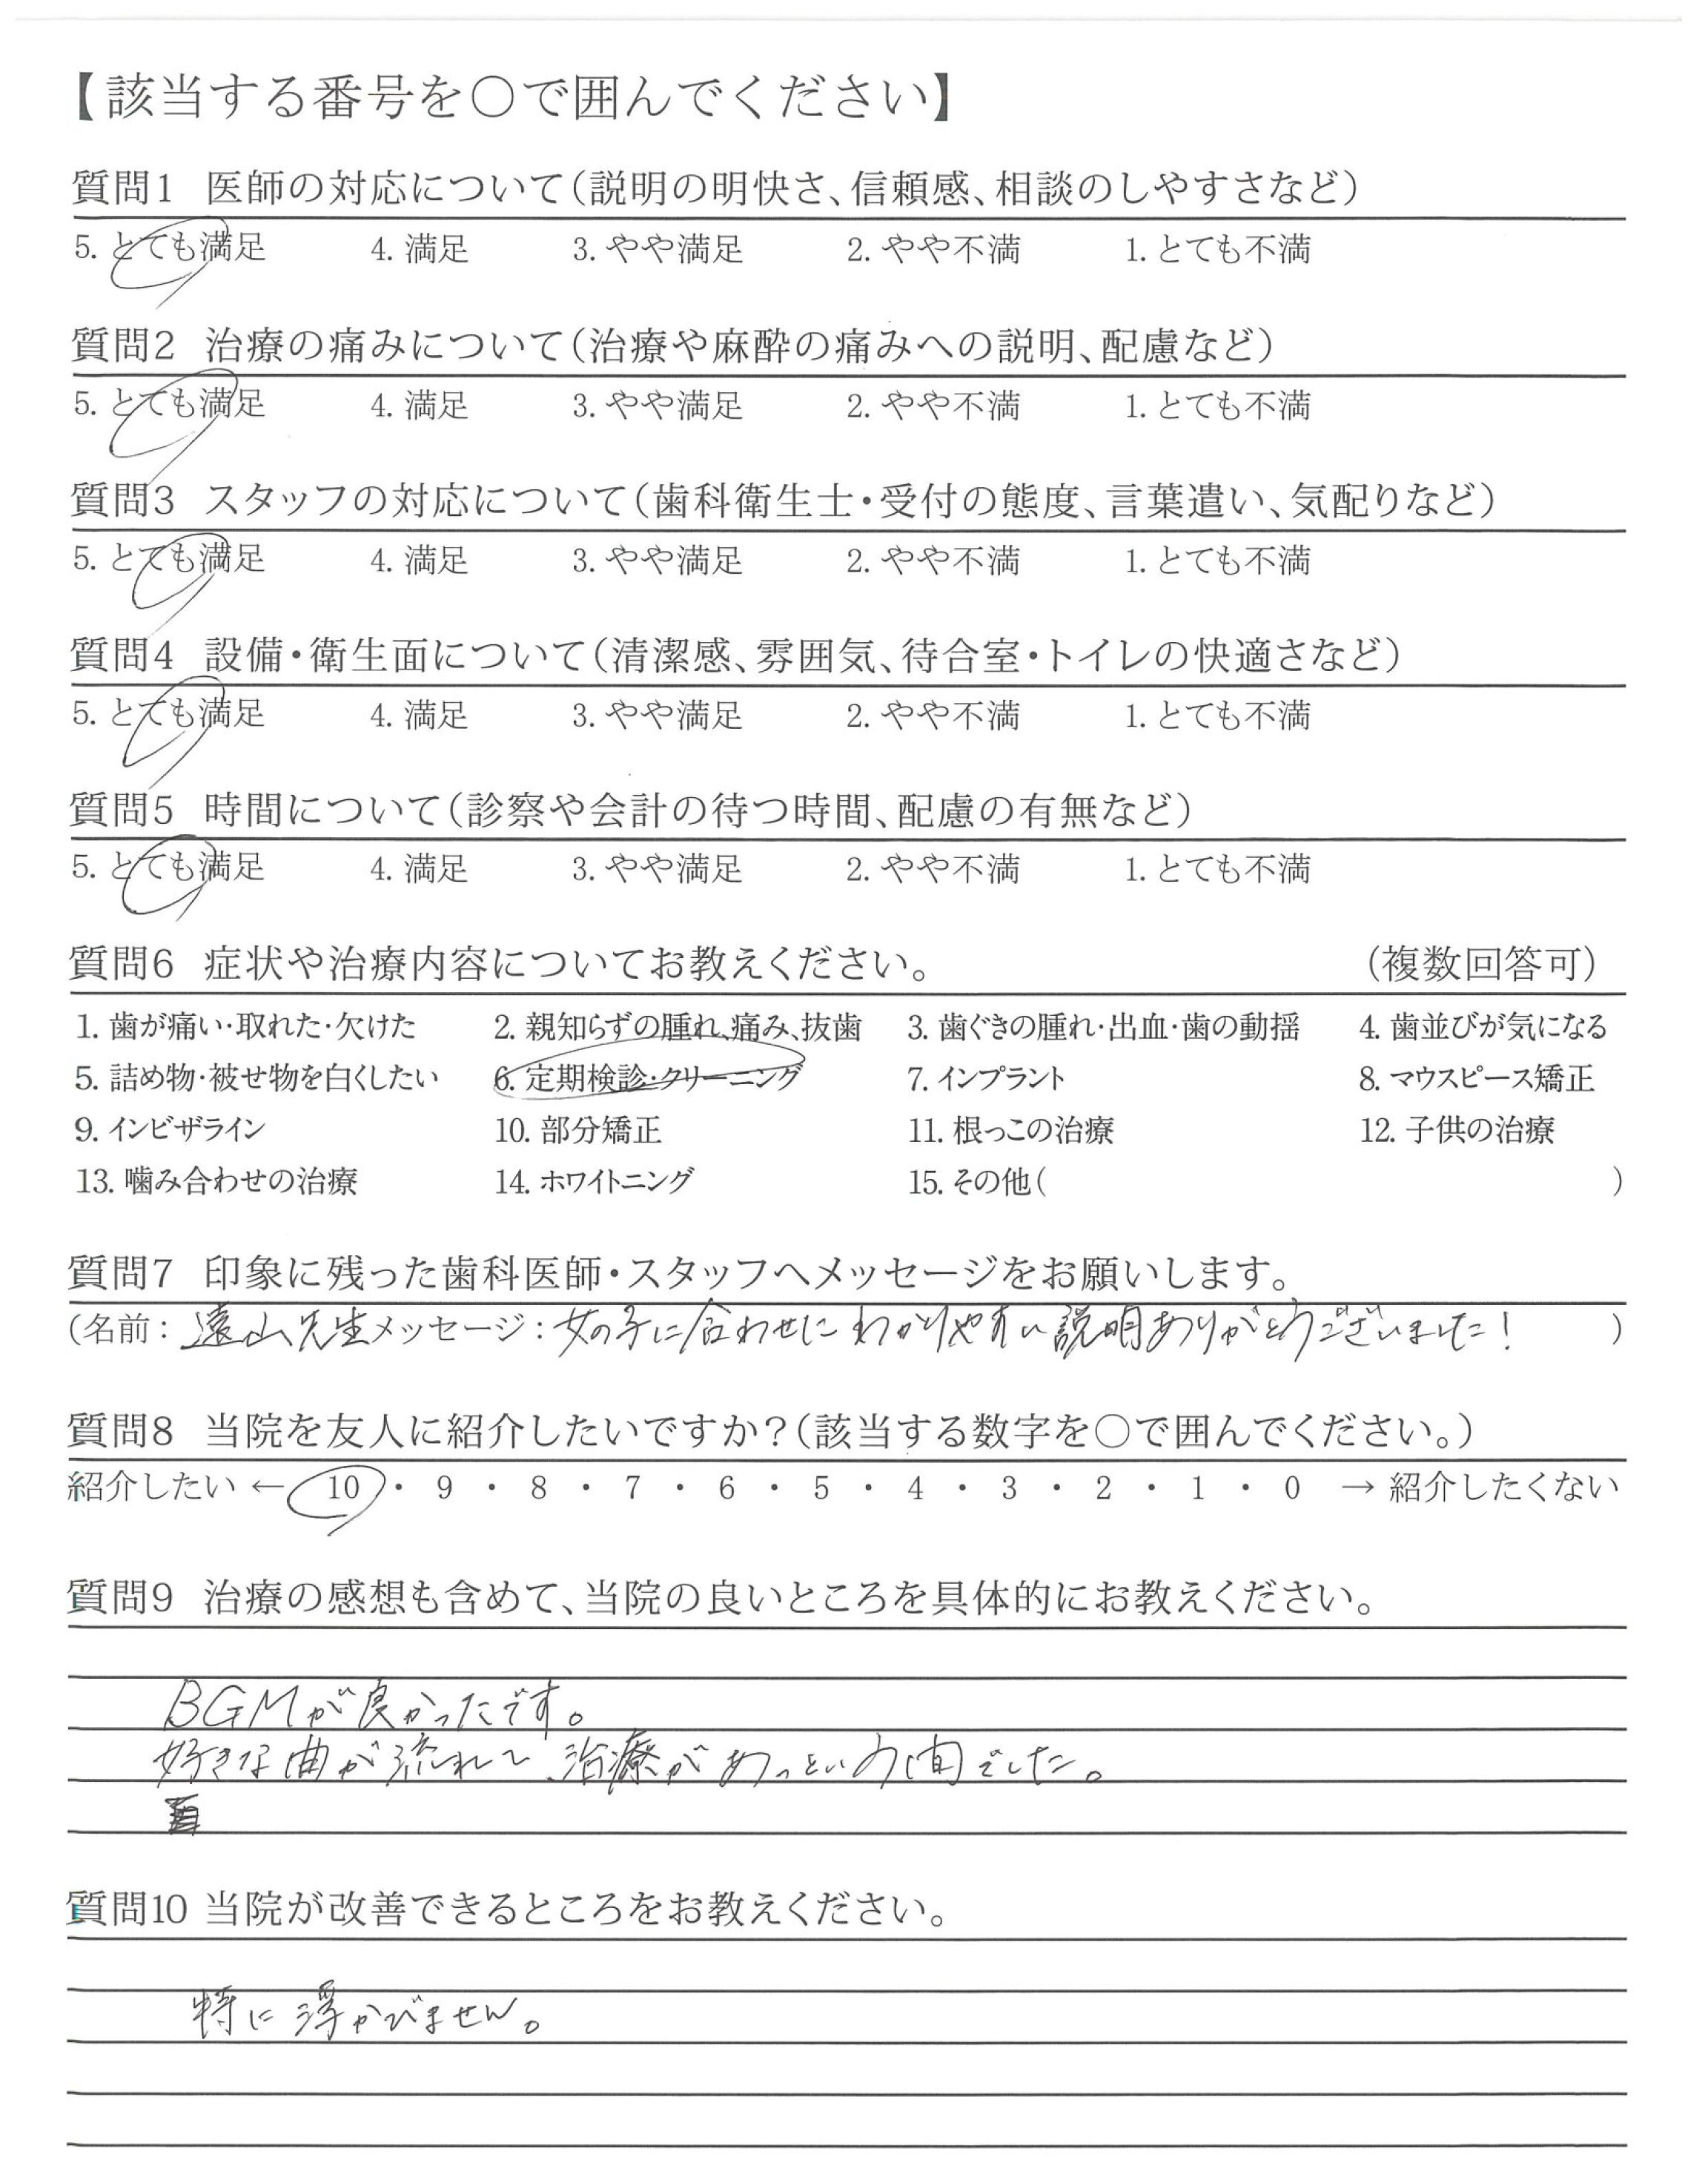 【該当する番号を○で囲んでください】
質問1 医師の対応について（説明の明快さ、信頼感、相談のしやすさなど）
5. とても満足 4. 満足 3. やや満足 2. やや不満 1. とても不満
質問2 治療の痛みについて（治療や麻酔の痛みへの説明、配慮など）
5. とても満足 4. 満足 3. やや満足 2. やや不満 1. とても不満
質問3 スタッフの対応について（歯科衛生士・受付の態度、言葉遣い、気配りなど）
5. とても満足 4. 満足 3. やや満足 2. やや不満 1. とても不満
質問4 設備・衛生面について（清潔感、雰囲気、待合室・トイレの快適さなど）
5. とても満足 4. 満足 3. やや満足 2. やや不満 1. とても不満
質問5 時間について（診察や会計の待つ時間、配慮の有無など）
5. とても満足 4. 満足 3. やや満足 2. やや不満 1. とても不満
質問6 症状や治療内容についてお教えください。 （複数回答可）
1. 歯が痛い・取れた・欠けた 2. 親知らずの腫れ、痛み、抜歯 3. 歯ぐきの腫れ・出血・歯の動揺 4. 歯並びが気になる
5. 詰め物・被せ物を白くしたい 6. 定期検診・クリーニング 7. インプラント 8. マウスピース矯正
9. インビザライン 10. 部分矯正 11. 根っこの治療 12. 子供の治療
13. 噛み合わせの治療 14. ホワイトニング 15. その他（ ）
質問7 印象に残った歯科医師・スタッフへメッセージをお願いします。
（名前：遠山先生 メッセージ：女の子に合わせに わかりやすい説明ありがとうございました！ ）
質問8 当院を友人に紹介したいですか？（該当する数字を○で囲んでください。）
紹介したい ← 10 ・ 9 ・ 8 ・ 7 ・ 6 ・ 5 ・ 4 ・ 3 ・ 2 ・ 1 ・ 0 → 紹介したくない
質問9 治療の感想も含めて、当院の良いところを具体的にお教えください。
BGMが良かったです。
好きな曲が流れて、治療があっという間でした。
質問10 当院が改善できるところをお教えください。
特に浮かびません。